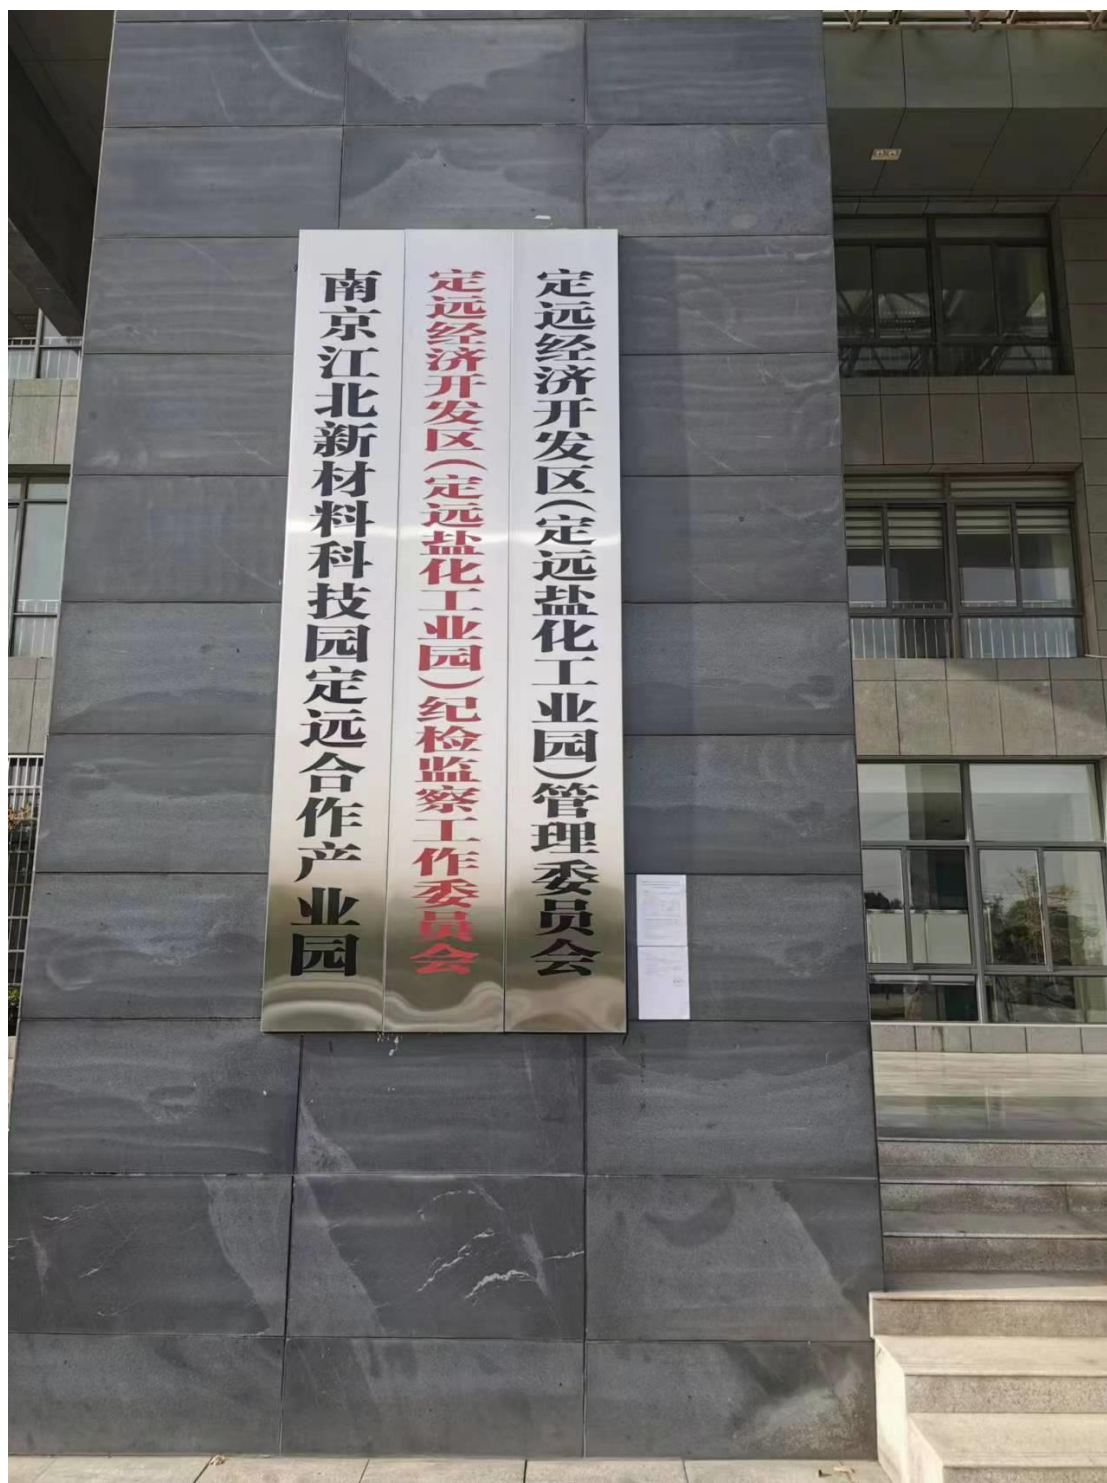 定远经济开发区(定远盐化工业园)管理委员会
定远经济开发区(定远盐化工业园)纪检监察工作委员会
南京江北新材料科技园定远合作产业园